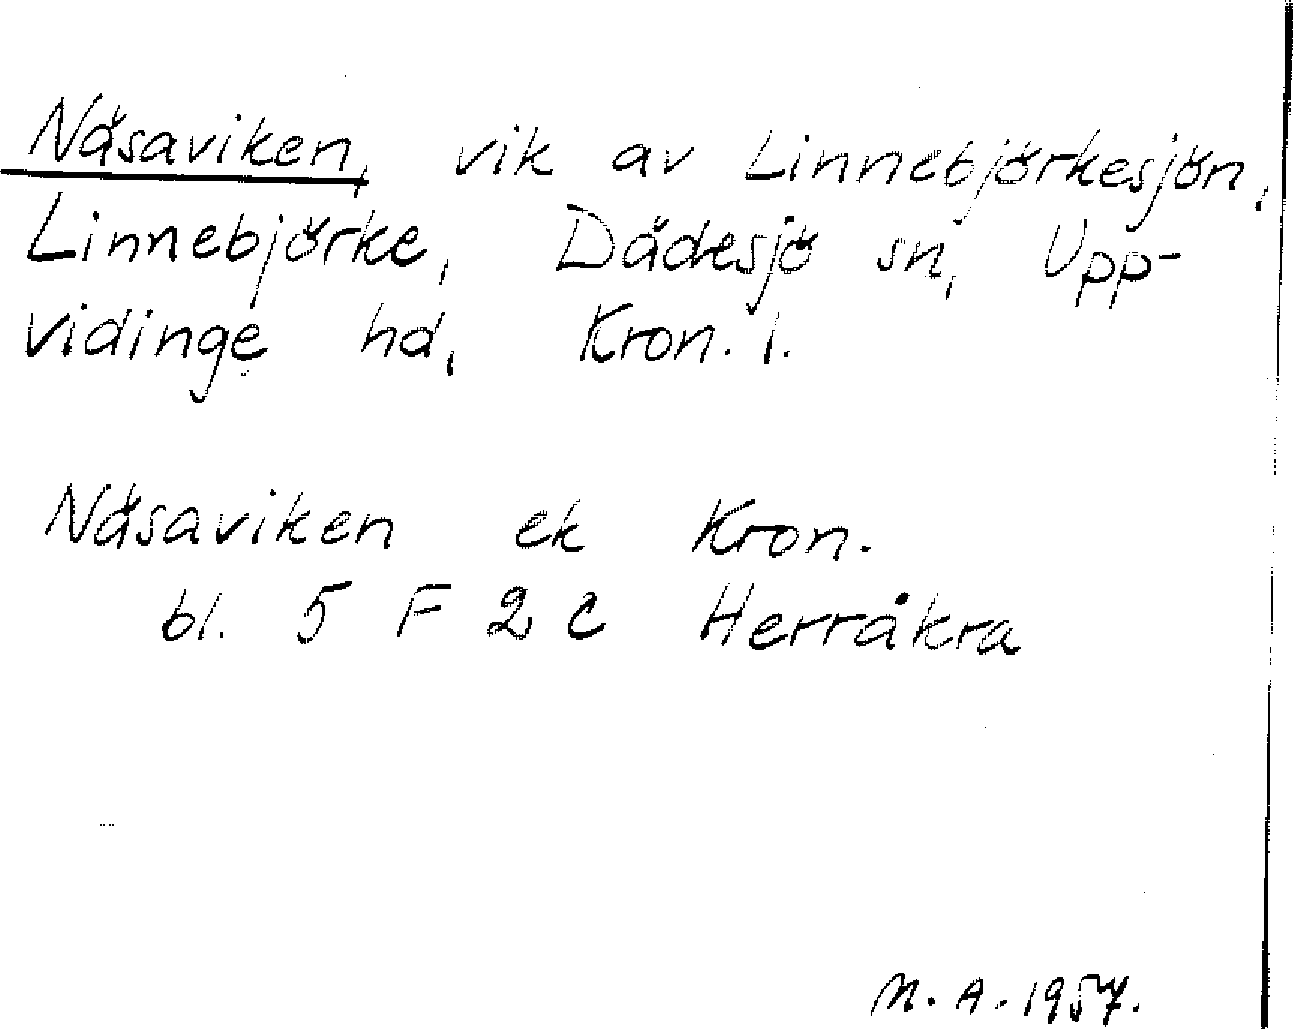 Näsaviken, vik av Linnebjörkesjön,
Linnebjörke, Dädesjö sn, Upp-
vidinge hd, Kron. l.
Näsaviken ek Kron.
bl. 5 F 2 c Herråkra
M. A. 1957.